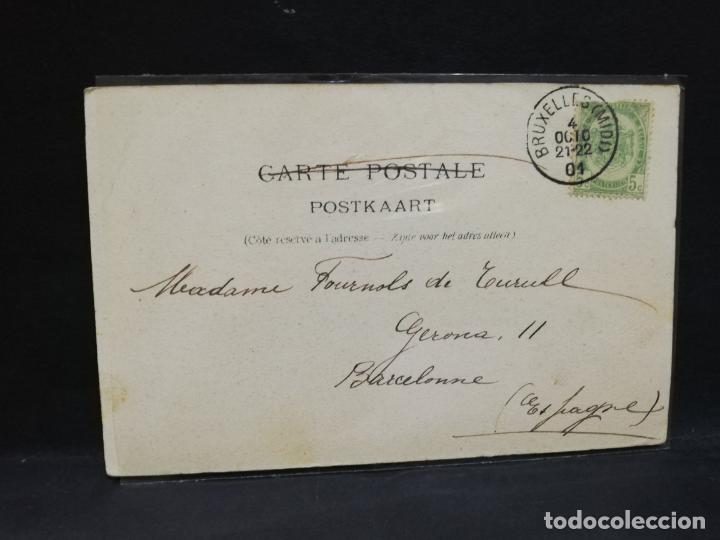 BRUXELLES (MIDI)
4
OCTO
21-22
01
5c
CARTE POSTALE
POSTKAART
(Côté réservé à l'adresse — Zijde voor het adres alleen)
Madame Fournols de Turull
Gerona, 11
Barcelonne
(Espagne)
todocoleccion